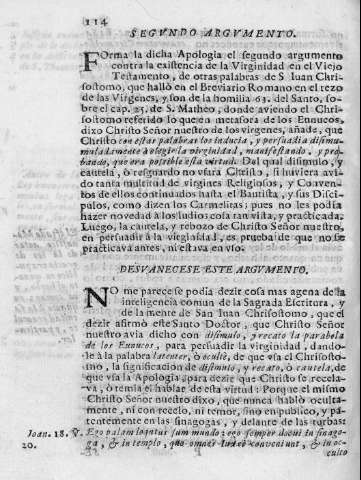 114
SEGVNDO ARGVMENTO.
FOrma la dicha Apologia el segundo argumento
contra la existencia de la Virginidad en el Viejo
Testamento, de otras palabras de S. Iuan Chri-
sostomo, que hallò en el Breviario Romano en el rezo
de las Virgenes, y son de la homilia 63. del Santo, so-
bre el cap. 25. de S. Matheo, donde aviendo el Chri-
sostomo referido lo que en metafora de los Eunucos,
dixo Christo Señor nuestro de los virgenes, añade, que
Christo con estas palabras los inducia, y persuadia dissimu-
muladamente à elegir la virginidad, manifestando, y pro-
bando, que era possible esta virtud. Del qual disimulo, y
cautela, o resguardo no vsara Christo, si huviera avi-
do tanta multitud de virgines Religiosos, y Conven-
tos de ellos continuados hasta el Bautista, y sus Disci-
pulos, como dizen los Carmelitas; pues no les podia
hazer novedad à los Iudios cosa tan vista, y practicada.
Luego, la cautela, y rebozo de Christo Señor nuestro,
en persuadir à la virginidad, es prueba de que no se
practicava antes, ni estava en vso.
DESVANECESE ESTE ARGVMENTO.
NO me parece se podia dezir cosa mas agena de la
inteligencia comun de la Sagrada Escritura, y
de la mente de San Iuan Chrisostomo, que el
dezir afirmò este Santo Doctor, que Christo Señor
nuestro avia dicho con disimulo, y recato la parabola
de los Eunucos, para persuadir la virginidad, dando-
le à la palabra latenter, ò occultè, de que vsa el Chrisosto-
mo, la significacion de disimulo, y recato, ò cautela, de
que vsa la Apologia, para dezir que Christo se recela-
va, ò temia el hablar de esta virtud: Porque el mismo
Christo Señor nuestro dixo, que nunca hablò oculta-
mente, ni con recelo, ni temor, sino en publico, y pa-
tentemente en las sinagogas, y delante de las turbas:
Ioan. 18. V. Ego palam locutus sum mundo: ego semper docui in sinago-
20. ga, & in templo, quo omnes Iudæi conveniunt, & in oc-
culto